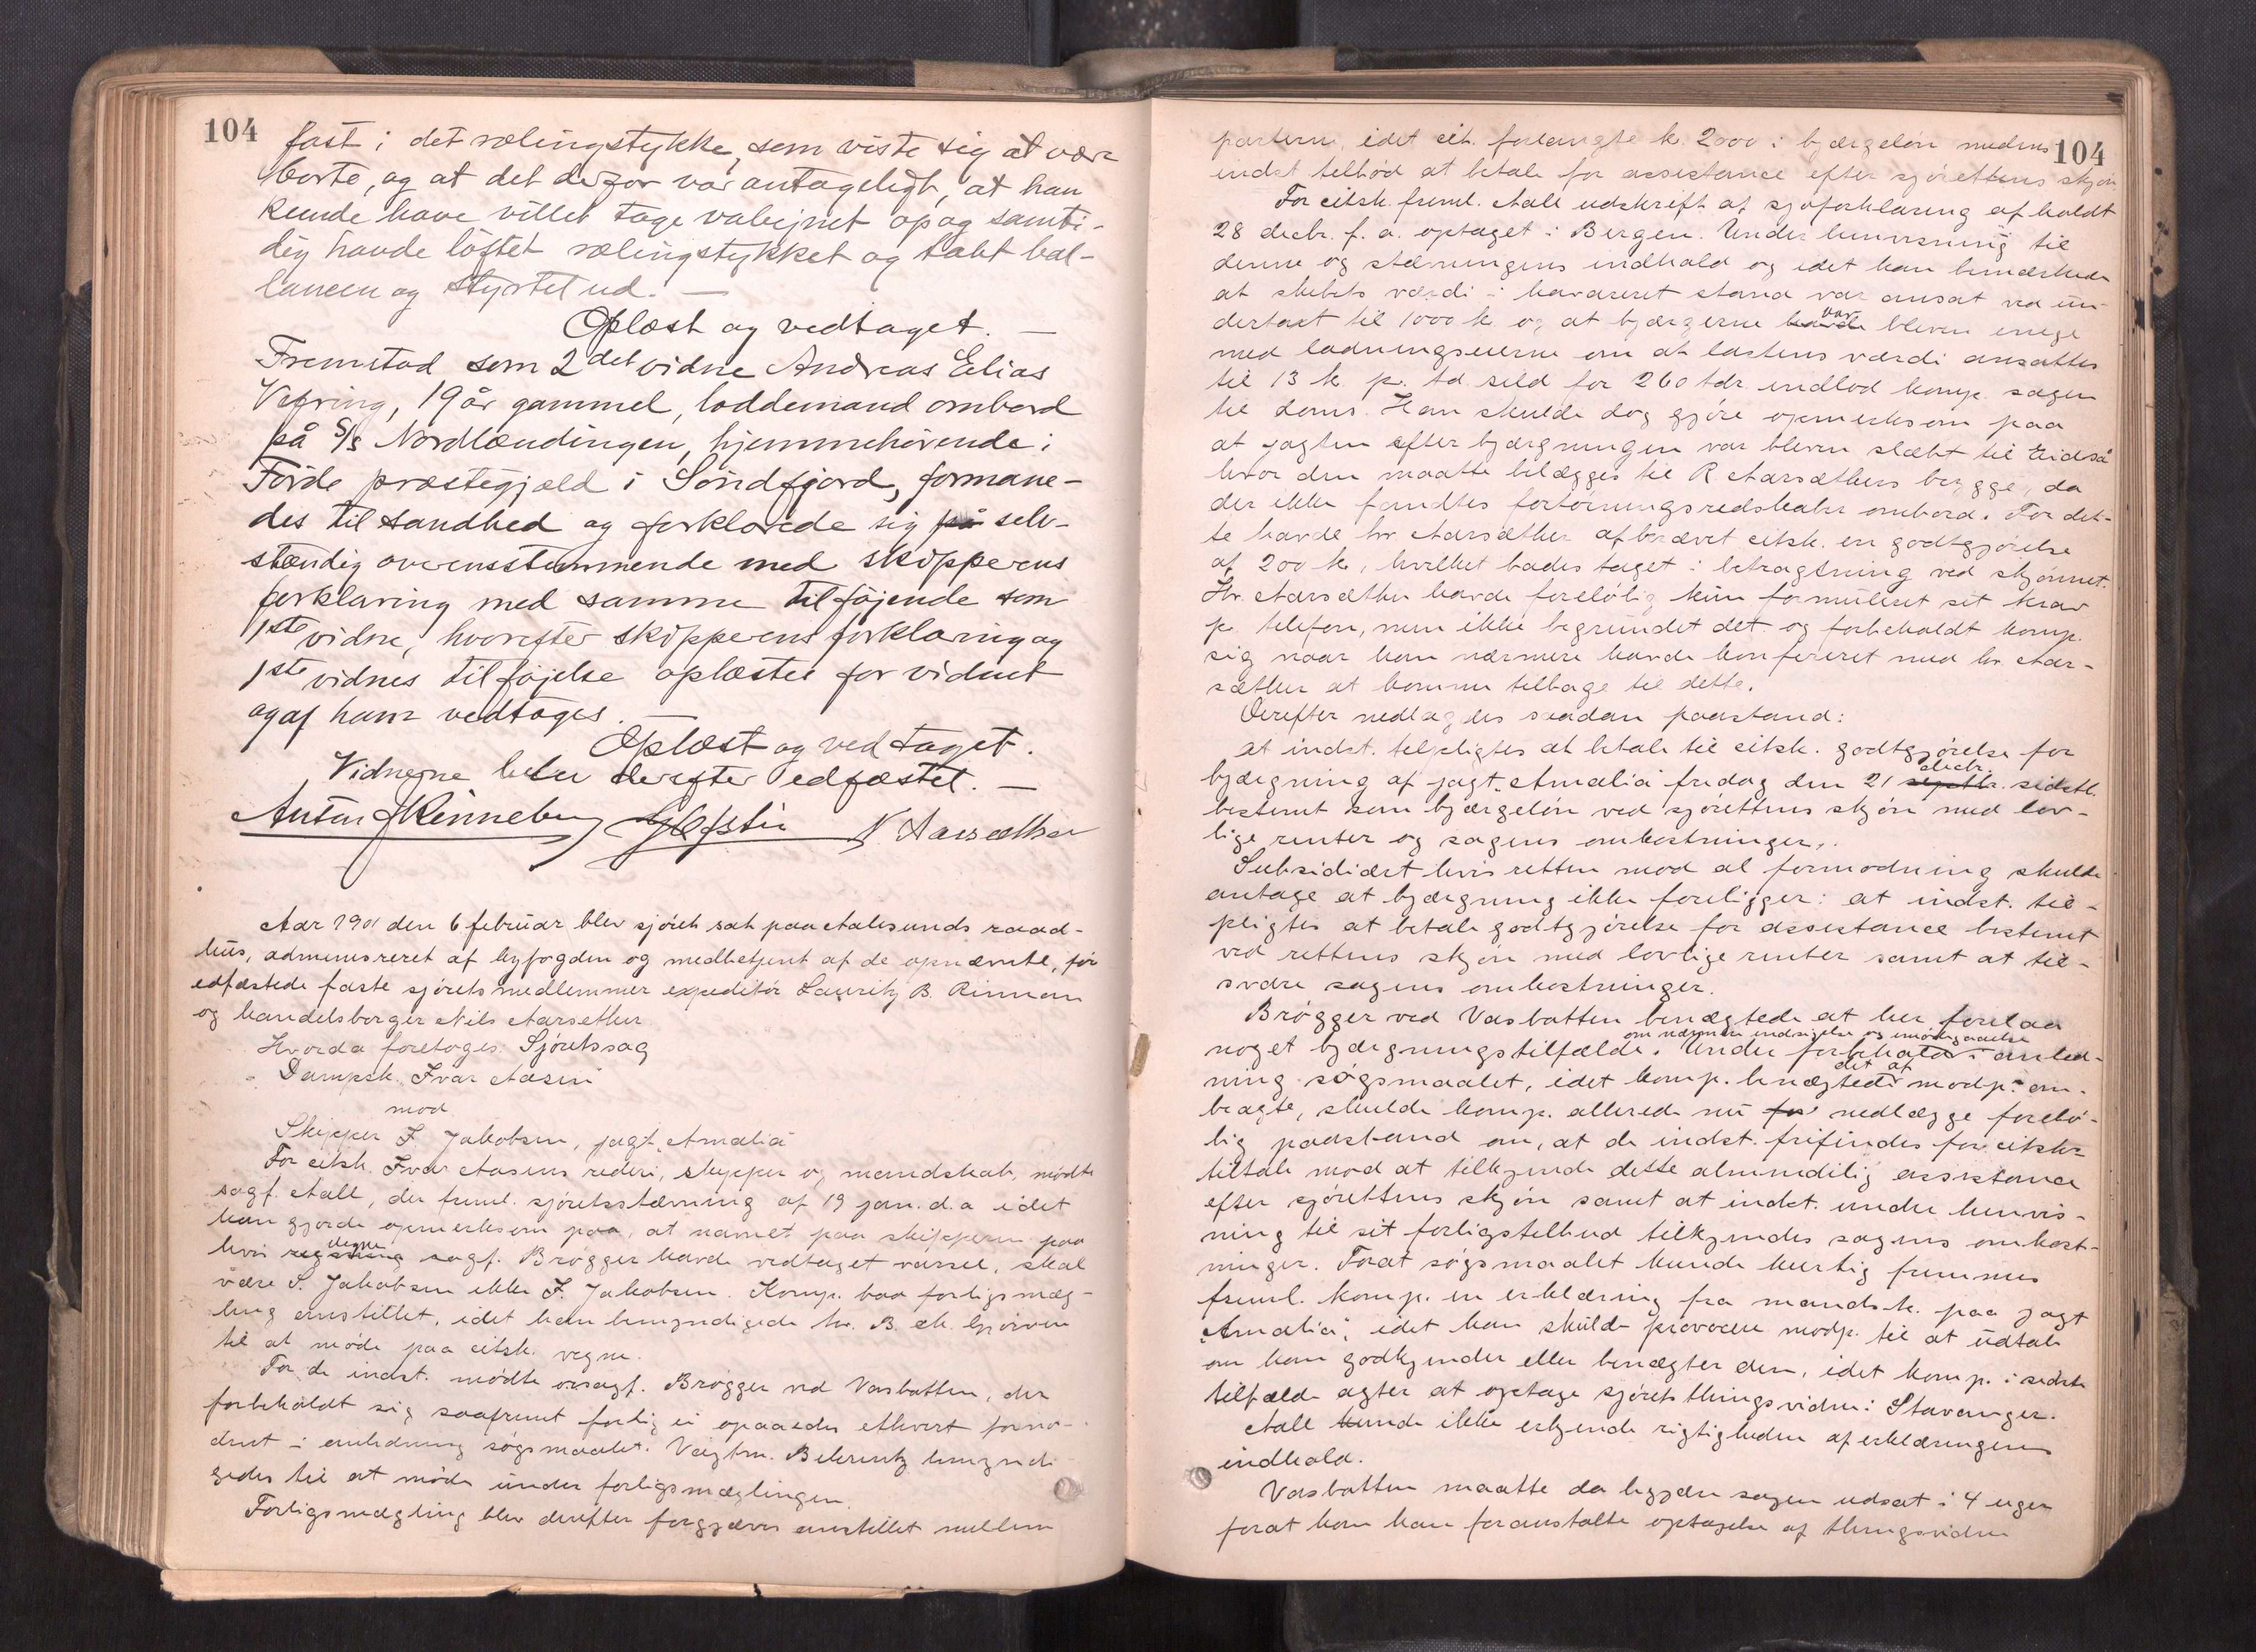 104
fast i det rælingstykke, som viste sig at være
borte, og at det derfor var antageligt, at han
kunde have villet tage valejnet op og samti-
dig havde löftet rælingstykket og tabt bal-
lancen og styrtet ud. —
Oplæst og vedtaget. —
Fremstod som 2det vidne Andreas Elias
Vefring, 19 år gammel, loddemand ombord
på S/S Nordlændingen, hjemmehörende i
Förde præstegjæld i Söndfjord, formane-
des til sandhed og forklarede sig på selv-
stændig overensstemmende med skipperens
forklaring med samme tilföjende som
1ste vidne, hvorefter skipperens forklaring og
1ste vidnes tilföjelse oplæstes for vidnet
og af ham vedtoges. —
Oplæst og vedtaget.
Vidnerne blev derefter edfæstet. —
Anton J Rinneberg N. Aarsæther
Aar 1901 den 6 februar blev sjöret sat paa Aalesunds raad-
hus, administreret af byfogden og medbetjent af de opnævnte, för
edfæstede faste sjöretsmedlemmer expeditör Lauritz B. Rinnan
og handelsborger Nils Aarsether
Hvorda foretoges: Sjöretssag
Dampsk. Ivar Aasen
mod
Skipper F. Jakobsen, jagt "Amalia"
For citsk. Ivar Aasens rederi, skipper og mandskab, mödte
sagf. Aall, der freml. sjöretsstævning af 19 jan. d.a idet
han gjorde opmerksom paa, at navnet paa skipperen paa
hvis vegne sagf. Brøgger havde vedtaget varsel, skal
være S. Jakobsen ikke F. Jakobsen. Komp. bad forligsmæg-
ling anstillet, idet han bemyndigede hr. B. ek. Gjörven
til at møde paa citsk. vegne.
For de indst. mødte orsagf. Brøgger ved Vasbotten, der
forbeholdt sig saafremt forlig ei opaaedes ethvert fornö-
dent i anledning søgsmaalet. Vagtm. Behrentz bemyndi-
gedes til at møde under forligsmæglingen.
Forligsmægling blev derefter forgjæves anstillet mellem
104
parterne, idet cit. forlangte kr. 2000 i bjærgelön medens
indst tilbød at betale for assistance efter sjörettens skjön
For citsk. freml. Aall udskrift af sjöforklaring afholdt
28 decbr. f. a. optaget i Bergen. Under henvisning til
denne og stævningens indhold og idet han bemærkede
at skibets værdi i havareret stand var ansat ved un-
dertaxt til 1000 kr og at bjærgerne havde var bleven enige
med ladningseierne om at lastens værdi ansattes
til 13 kr. pr. td. sild for 260 tdr. indlod komp. sagen
til doms. Han skulde dog gjöre opmerksom paa
at jagten efter bjærgningen var bleven slæbt til Eidsaa
hvor den maatte belægges til R Aarsæthers brygge, da
der ikke fandtes fortöiningsredskaber ombord. For det-
te havde hr. Aarsæther afkrævet citsk. en godtgjörelse
af 200 kr., hvilket bades taget i betragtning ved skjønnet.
Hr. Aarsæther havde foreløbig kun formuleret sit krav
pr. telefon, men ikke begrundet det og forbeholdt komp.
sig naar han nærmere havde konfereret med hr. Aar-
sæther at komme tilbage til dette.
Derefter nedlagdes saadan paastand:
at indst. tilpligtes at betale til citsk. godtgjørelse for
bjærgning af jagt "Amalia" fredag den 21 septbr. decbr. sidstl.
bestemt som bjærgelön ved sjörettens skjøn med lov-
lige renter og sagens omkostninger.
Subsidiært hvis retten mod al formodning skulde
antage at bjærgning ikke foreligger: at indst. til-
pligtes at betale godtgjørelse for assistance bestemt
ved rettens skjøn med lovlige renter samt at til-
svare sagens omkostninger.
Brøgger ved Vasbotten benægtede at her forelaa
noget bjærgningstilfælde. Under forbehold om nærmere indsigelse og imödegaaelse i anled-
ning søgsmaalet, idet komp. benægtede det af modp. an-
bragte, skulde komp. allerede nu for nedlægge forelø-
big paastand om, at de indst. frifindes for citsk.
tiltale mod at tilkjende dette almindelig assistance
efter sjörettens skjøn samt at indst. under henvis-
ning til sit forligstilbud tilkjendes sagens omkost-
ninger. Forat søgsmaalet kunde hurtig fremmes
freml. komp. en erklæring fra mandsk. paa jagt
"Amalia", idet han skulde provocere modp. til at udtale
om han godkjender eller benægter den, idet komp. i sidste
tilfælde agter at optage sjörets thingsvidne i Stavanger.
Aall kunde ikke erkjende rigtigheden af erklæringens
indhold.
Vasbotten maatte da begjære sagen udsat i 4 uger
forat han kan foranstalte optagelse af thingsvidne